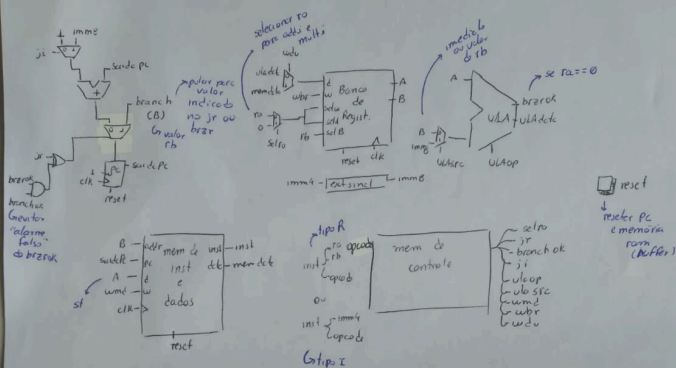 1
imm8
ji
saida pc
+
branch
(B)
valor
rb
pular para
valor
indicado
no jr ou
brzr
jr
brzrok
branchok
evitar
"alarme
falso"
do brzrok
PC
saida Pc
clk
reset
selecionar r0
para addi e
multi
wdu
uladata
memdata
wbr
ra
0
selra
rb
d
w
selw
selA
selB
Banco
de
Regist.
A
B
reset
clk
imm4
ext sinal
imm8
imediato
ou valor
de rb
A
B
imm8
ULAsrc
ULA
ULAop
brzrok
ULAdata
se ra==0
reset
resetar Pc
e memória
ram
(buffer)
B
saidaPc
A
st
wmd
clk
addr
pc
d
w
mem de
inst
e
dados
inst
dat
inst
memdata
reset
tipo R
inst
ra
rb
opcode
ou
inst
imm4
opcode
tipo I
opcode
mem de
controle
selra
jr
branchok
ji
ulaop
ulasrc
wmd
wbr
wdu